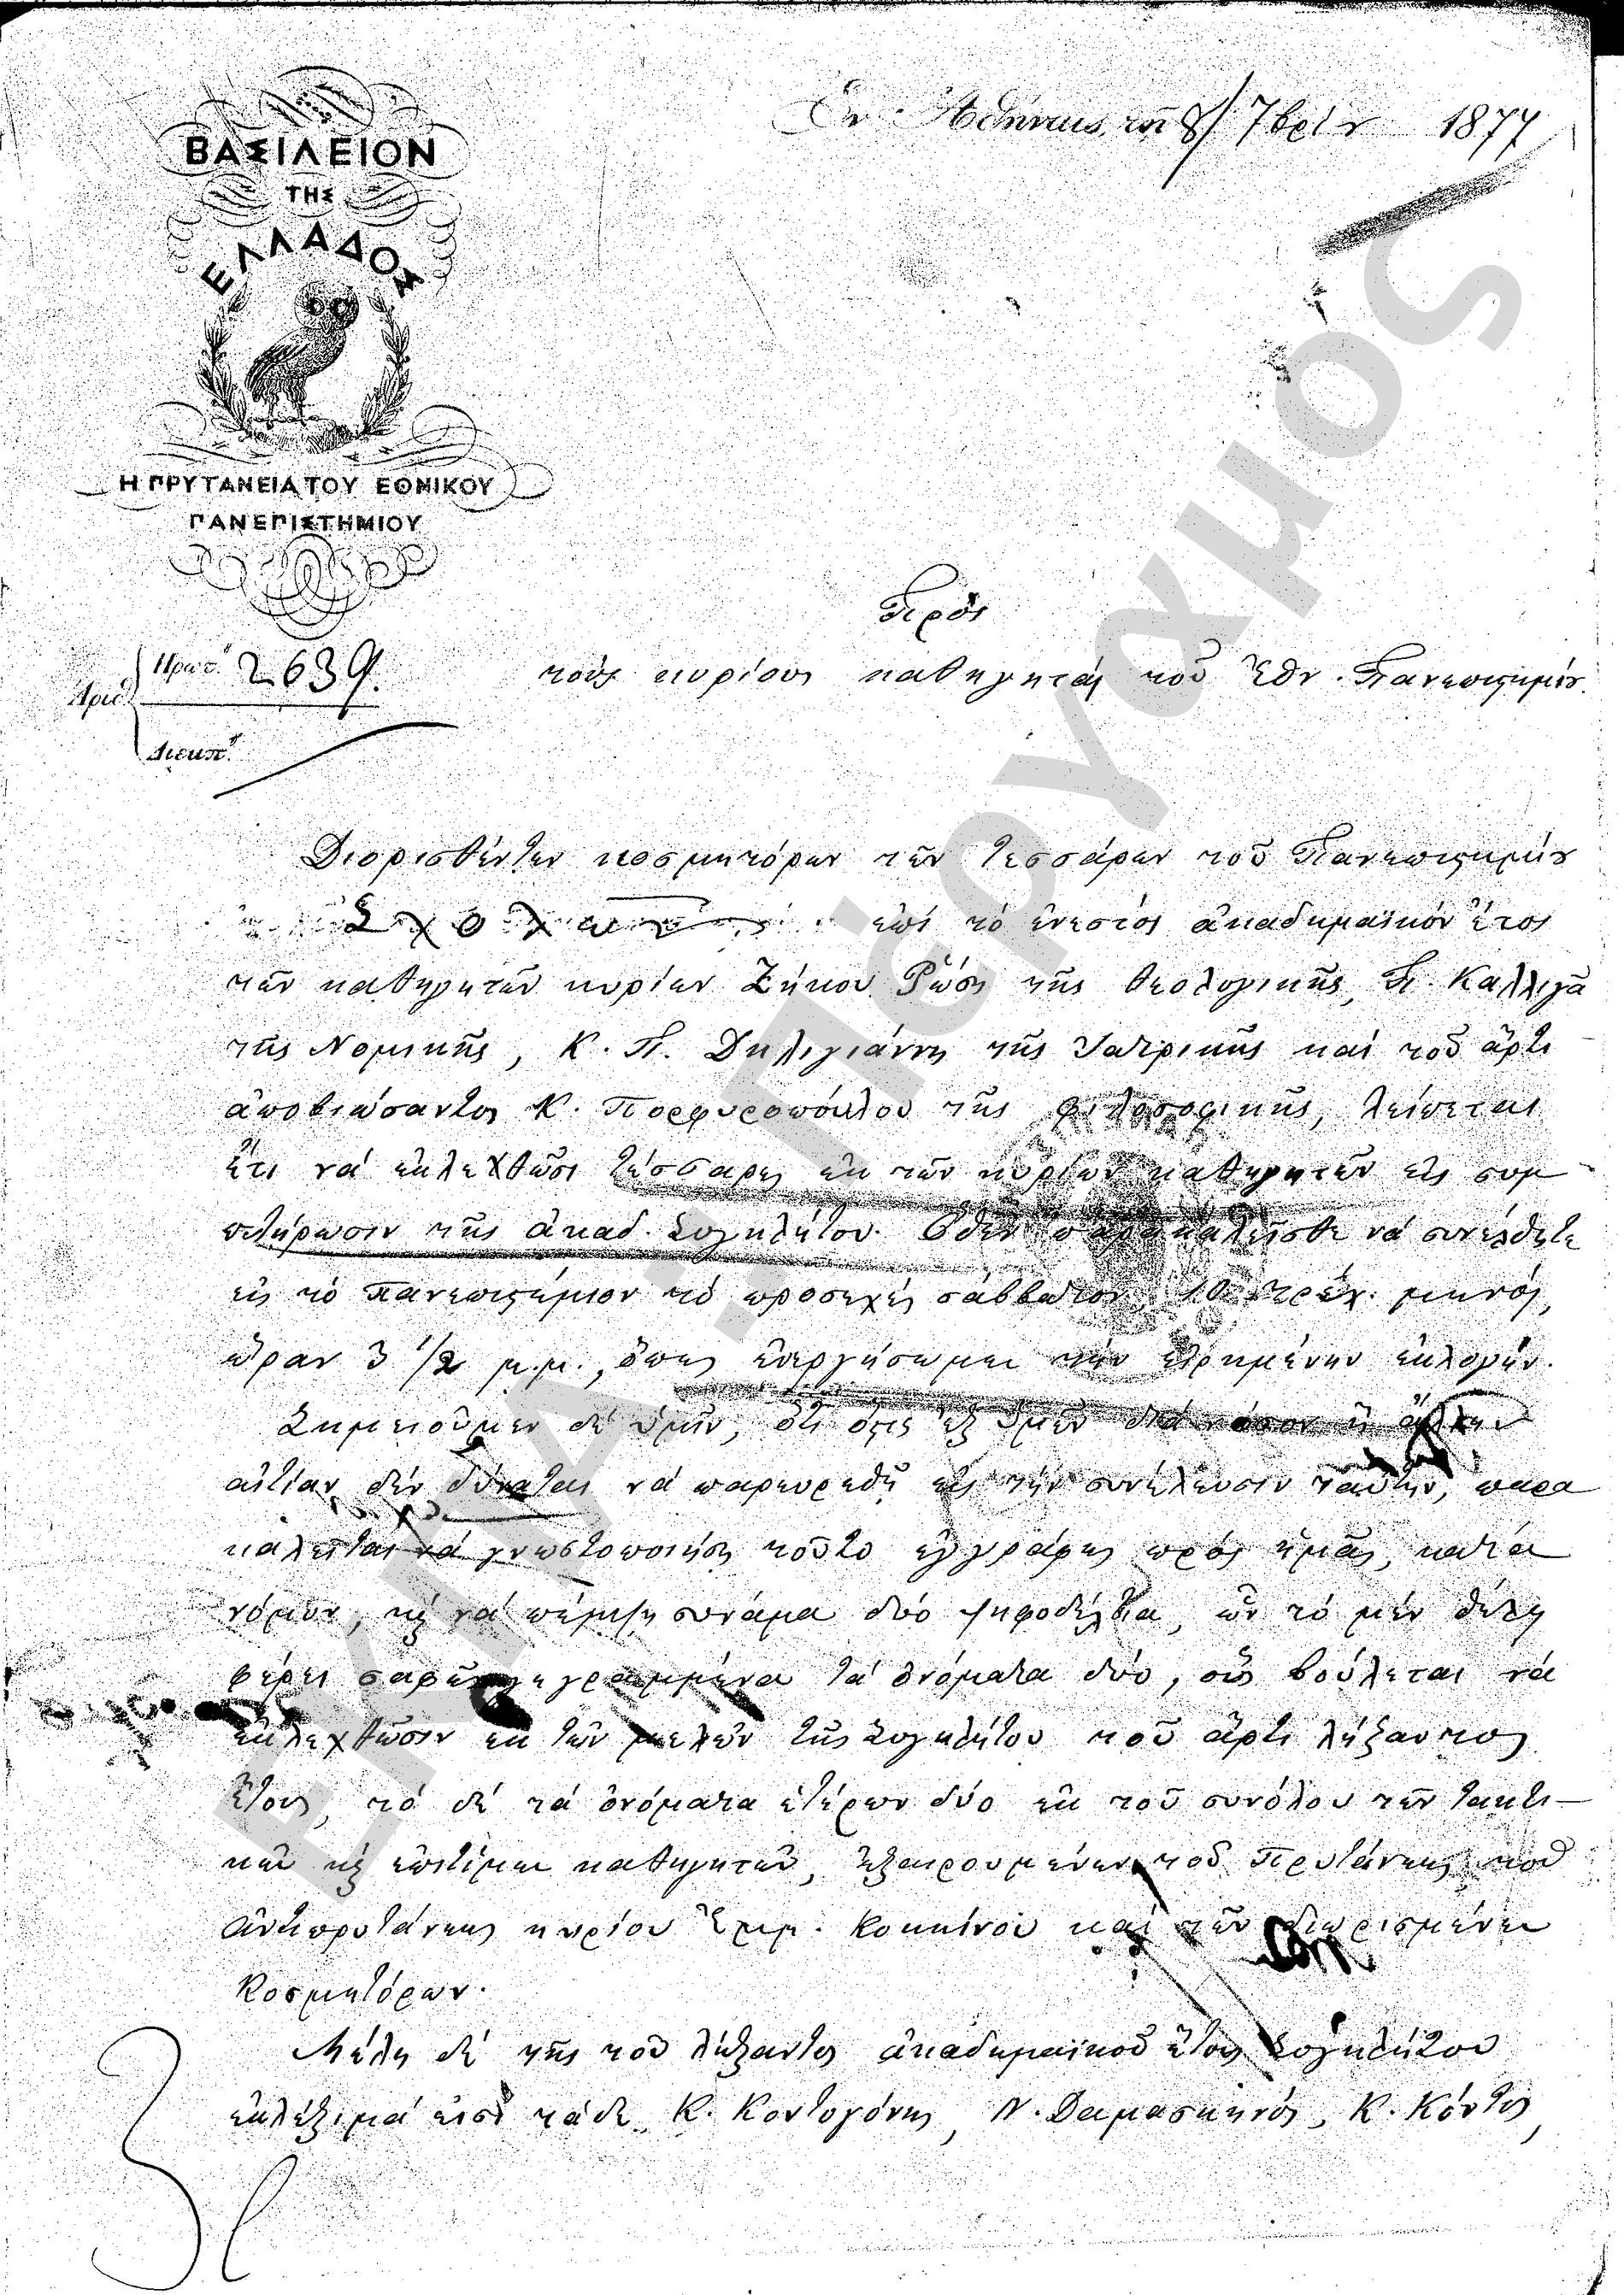 Ἐν Ἀθήναις, τῇ 8/7βρίου 1877
ΒΑΣΙΛΕΙΟΝ
ΤΗΣ
ΕΛΛΑΔΟΣ
Η ΠΡΥΤΑΝΕΙΑ ΤΟΥ ΕΘΝΙΚΟΥ
ΠΑΝΕΠΙΣΤΗΜΙΟΥ
Πρὸς
Ἀριθ. Πρωτ. 2639.
τοὺς κυρίους καθηγητὰς τοῦ Ἐθν. Πανεπιστημίου.
Διεκπ.
Διορισθέντων κοσμητόρων τῶν τεσσάρων τοῦ Πανεπιστημίου
Σχολῶν ἐπὶ τὸ ἐνεστὸς ἀκαδημαϊκὸν ἔτος
τῶν καθηγητῶν κυρίων Ζήκου Ῥώση τῆς Θεολογικῆς, Π. Καλλιγᾶ
τῆς Νομικῆς, Κ. Π. Δηλιγιάννη τῆς Ἰατρικῆς καὶ τοῦ ἄρτι
ἀποβιώσαντος Κ. Πορφυροπούλου τῆς Φιλοσοφικῆς, λείπεται
ἔτι νὰ ἐκλεχθῶσι τέσσαρες ἐκ τῶν κυρίων καθηγητῶν εἰς συμ
πλήρωσιν τῆς ἀκαδ. Συγκλήτου. Ὅθεν παρακαλεῖσθε νὰ συνέλθητε
εἰς τὸ πανεπιστήμιον τὸ προσεχὲς σάββατον, 10 τρέχ. μηνός,
ὥραν 3 1/2 μ.μ., ὅπως ἐνεργήσωμεν τὴν εἰρημένην ἐκλογήν.
Σημειοῦμεν δὲ ὑμῖν, ὅτι ὅστις ἐξ ὑμῶν διὰ νόσον ἢ ἄλλην
αἰτίαν δὲν δύναται νὰ παρευρεθῇ εἰς τὴν συνέλευσιν ταύτην, παρα
καλεῖται νὰ γνωστοποιήσῃ τοῦτο ἐγγράφως πρὸς ἡμᾶς, κατὰ
νόμον, κ̀ νὰ πέμψῃ συνάμα δύο ψηφοδέλτια, ὧν τὸ μὲν θέλῃ
φέρει σαφῶς γεγραμμένα τὰ ὀνόματα δύο, οὓς βούλεται νὰ
ἐκλεχθῶσιν ἐκ τῶν μελῶν τῆς Συγκλήτου τοῦ ἄρτι λήξαντος
ἔτους, τὸ δὲ τὰ ὀνόματα ἑτέρων δύο ἐκ τοῦ συνόλου τῶν τακτι—
κῶν κ̀ ἐπιτίμων καθηγητῶν, ἐξαιρουμένων τοῦ Πρυτάνεως, τοῦ
ἀντιπρυτάνεως κυρίου Ἐμμ. Κοκκίνου καὶ τῶν διωρισμένων
Κοσμητόρων.
Μέλη δὲ τῆς τοῦ λήξαντος ἀκαδημαϊκοῦ ἔτους Συγκλήτου
ἐκλέξιμά εἰσι τάδε Κ. Κοντογόνης, Ν. Δαμασκηνός, Κ. Κόντος,
ΕΚΠΑ - Πέργαμος